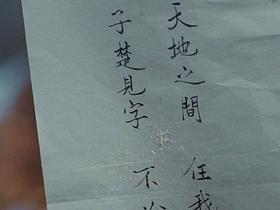 天地之間 任我
子楚見字 不